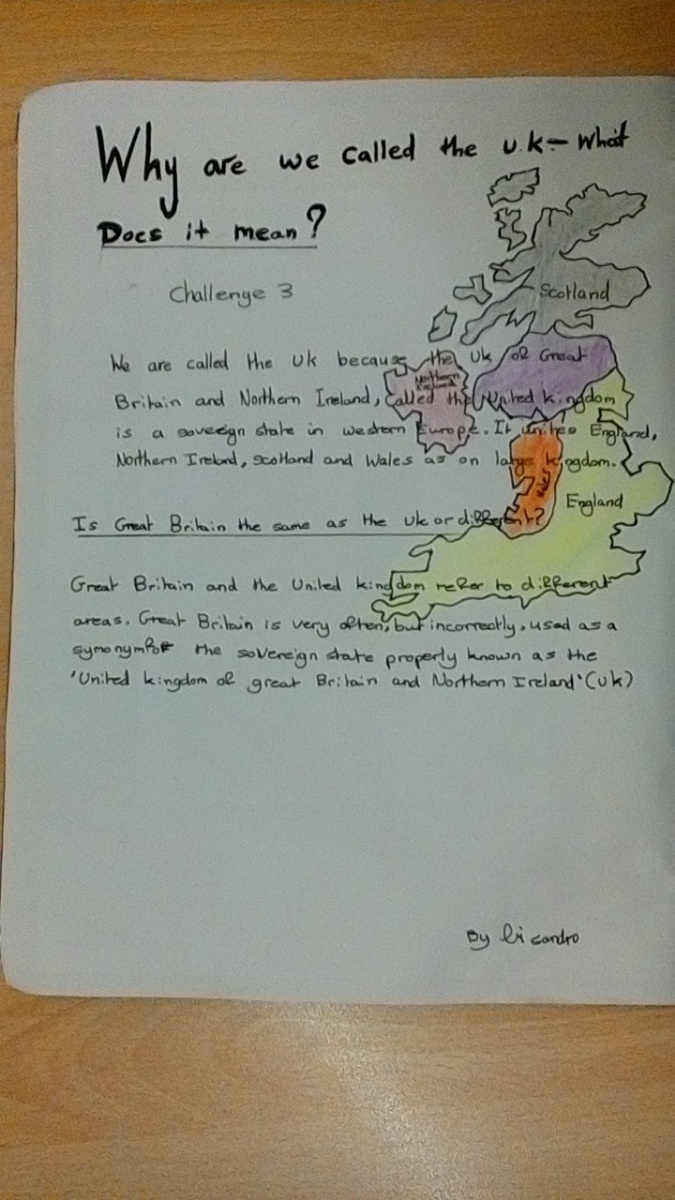 Why are we called the U.K - What
Does it mean?
Challenge 3
Scotland
We are called the UK because the UK of Great
Northern
Ireland
Britain and Northern Ireland, called the United kingdom
is a soveeign state in western Europe. It unites England,
Northern Ireland, scotland and Wales as on large kingdom.
Wales
England
Is Great Britain the same as the UK or different?
Great Britain and the United kingdom refer to different
areas. Great Britain is very often, but incorrectly, used as a
symonym for the sovereign state properly known as the
'United kingdom of great Britain and Northern Ireland' (UK)
By licandro